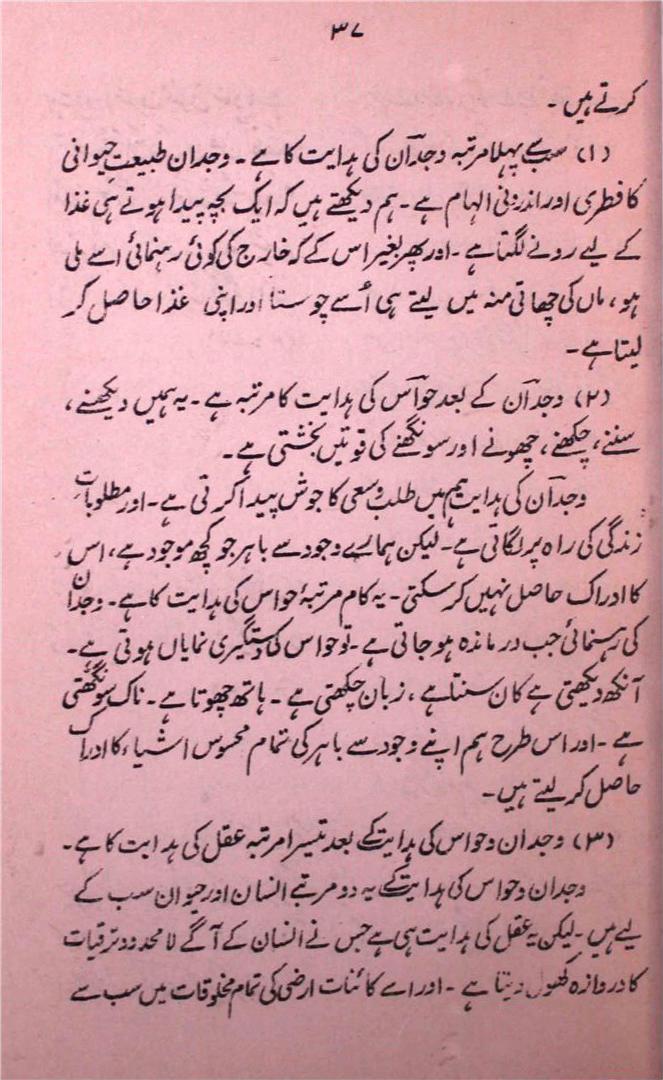 ۳۷
کرتے ہیں۔
(۱) سب سے پہلا مرتبہ وجدآن کی ہدایت کا ہے۔ وجدان طبیعتِ حیوانی
کا فطری اور اندرونی الہام ہے۔ ہم دیکھتے ہیں کہ ایک بچہ پیدا ہوتے ہی غذا
کے لیے رونے لگتا ہے۔ اور پھر بغیر اس کے کہ خارج کی کوئی رہنمائی اسے ملی
ہو، ماں کی چھاتی منہ میں لیتے ہی اُسے چوستا اور اپنی غذا حاصل کر
لیتا ہے۔
(۲) وجدآن کے بعد حوآس کی ہدایت کا مرتبہ ہے۔ یہ ہمیں دیکھنے،
سننے، چکھنے، چھونے اور سونگھنے کی قوتیں بخشتی ہے۔
وجدآن کی ہدایت ہم میں طلب و سعی کا جوش پیدا کرتی ہے۔ اور مطلوباتِ
زندگی کی راہ پر لگاتی ہے۔ لیکن ہمارے وجود سے باہر جو کچھ موجود ہے، اس
کا ادراک حاصل نہیں کر سکتی۔ یہ کام مرتبۂ حواس کی ہدایت کا ہے۔ وجدان
کی رہنمائی جب درماندہ ہو جاتی ہے۔ تو حواس کی دستگیری نمایاں ہوتی ہے۔
آنکھ دیکھتی ہے کان سنتا ہے، زبان چکھتی ہے۔ ہاتھ چھوتا ہے۔ ناک سونگھتی
ہے۔ اور اس طرح ہم اپنے وجود سے باہر کی تمام محسوس اشیاء کا ادراک
حاصل کر لیتے ہیں۔
(۳) وجدان و حواس کی ہدایت کے بعد تیسرا مرتبہ عقل کی ہدایت کا ہے۔
وجدان و حواس کی ہدایت کے یہ دو مرتبے انسان اور حیوان سب کے
لیے ہیں۔ لیکن یہ عقل کی ہدایت ہی ہے جس نے انسان کے آگے لامحدود ترقیات
کا دروازہ کھول دیتا ہے۔ اور اسے کائنات ارضی کی تمام مخلوقات میں سب سے